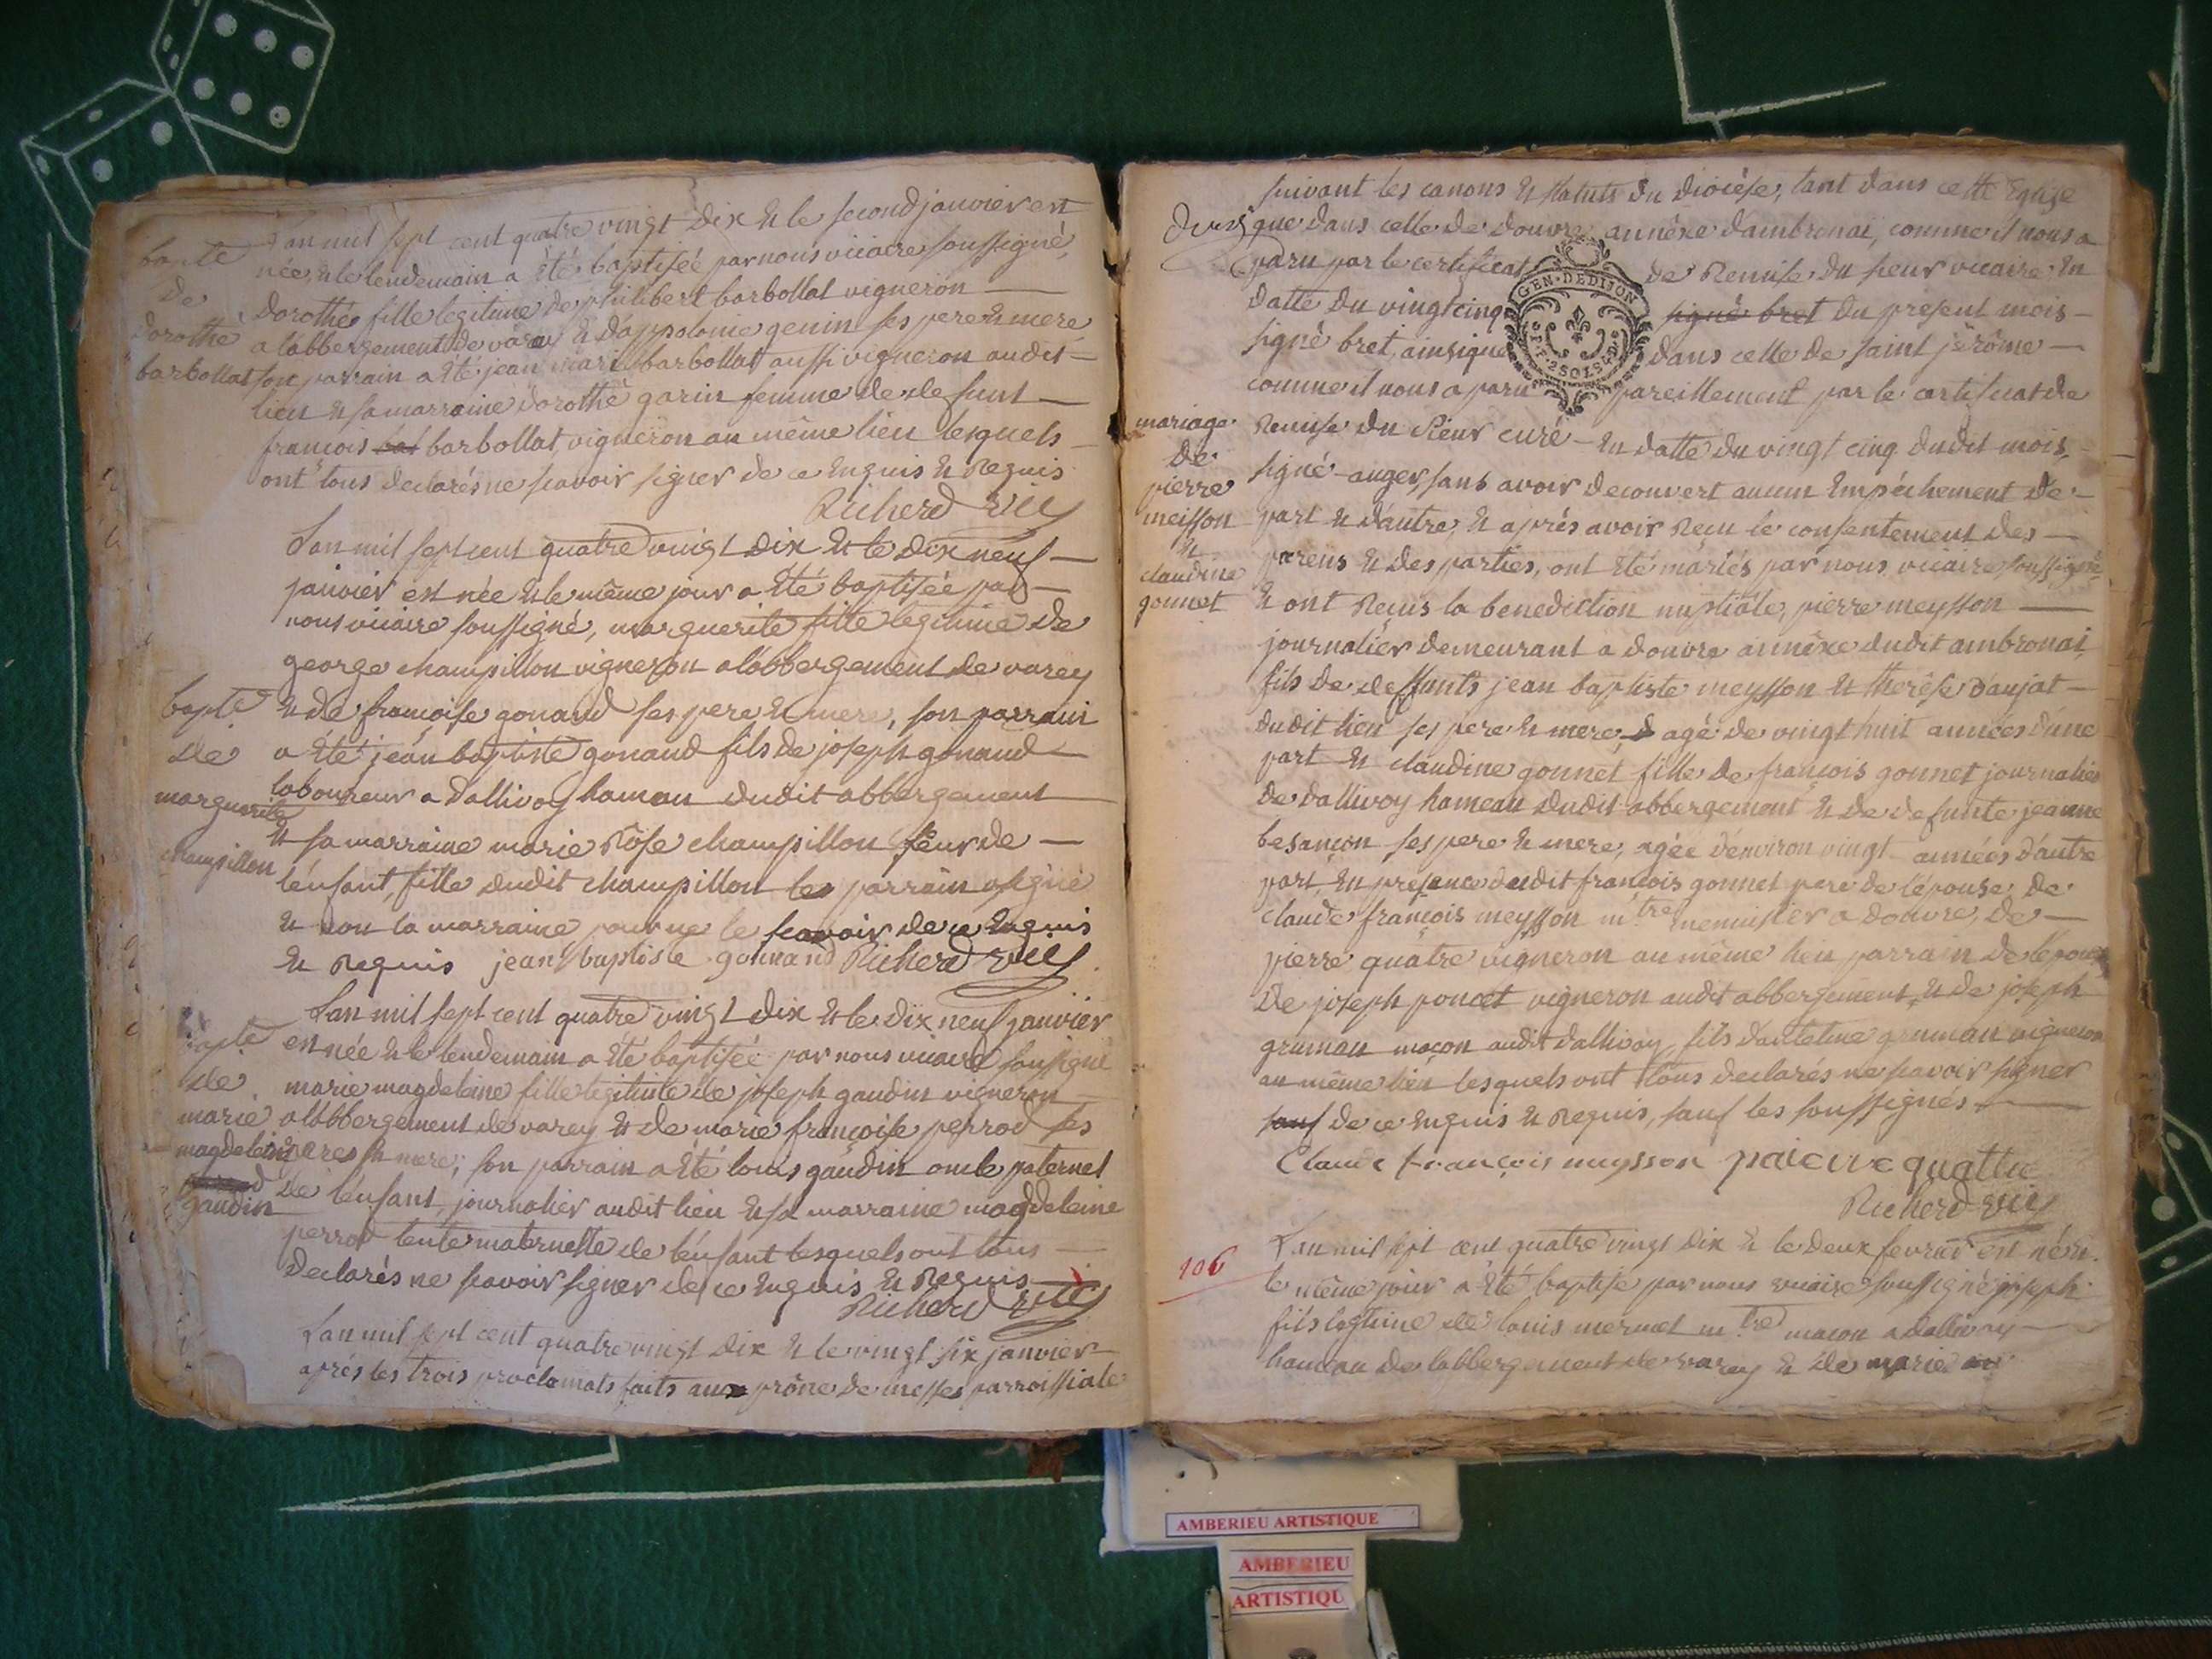 L'an mil sept cent quatre vingt dix et le second janvier est
née, et le lendemain a été baptisée par nous vicaire soussigné,
dorothée fille legitime de philibert barbollat vigneron
a labbergement de varey et d'appolonie genin ses pere et mere
son parrain a été jean marie barbollat aussi vigneron audit
lieu et sa marraine dorothé garin femme de defunt
francois bal barbollat, vigneron au même lieu lesquels
ont tous declarés ne scavoir signer de ce enquis et requis
Richerd vic
bapte
de
dorothé
barbollat
L'an mil sept cent quatre vingt dix et le dix neuf
janvier est née et le même jour a été baptisée par
nous vicaire soussigné, marguerite fille legitime de
george champillon vigneron a labbergement de varey
et de françoise gonard ses pere et mere, son parrain
a été jean baptiste gonaud fils de joseph gonaud
laboureur a dallivoy hamau dudit abbergement
et sa marraine marie rose champillon seur de
l'enfant, fille dudit champillon les parrain a signé
et non la marraine pour ne le scavoir de ce enquis
et requis jean baptiste gonnand Richerd vic
bapte
de
marguerite
champillon
L'an mil sept cent quatre vingt dix et le dix neuf janvier
est née et le lendemain a été baptisée par nous vicaire soussigné
marie magdeleine fille legitime de joseph gaudin vigneron
a labbergement de varey et de marie françoise perrod ses
peres et mere; son parrain a été louis gaudin oncle paternel
de l'enfant, journalier audit lieu et sa marraine magdeleine
perrod tente maternelle de l'enfant lesquels ont tous
declarés ne scavoir signer de ce enquis et requis
Richerd vic
bapte
de
marie
magdeleine
gaudin
L'an mil sept cent quatre vingt dix et le vingt six janvier
aprés les trois proclamats faits aux prône de messes parroissiale
suivant les canons et statuts du diocèse, tant dans cette Eglise
que dans celle de douvre annéxe dambronai, comme il nous a
paru par le certificat de Remise du sieur vicaire en
datte du vingt cinq signé bret du présent mois
signé bret, ainsi que dans celle de saint jérôme
comme il nous a paru pareillement par le certificat de
Remise du sieur curé en datte du vingt cinq dudit mois,
signé auger, sans avoir decouvert aucun empéchement de
part et d'autre, et aprés avoir reçu le consentement des
parens et des parties, ont été mariés par nous vicaire soussigné
et ont reçus la benediction nuptiale, pierre meysson
journalier demeurant a douvre annéxe dudit ambronai,
fils de deffunts jean baptiste meysson et therèse daujat
dudit lieu ses pere et mere, agé de vingt huit années d'une
part et claudine gonnet fille de francois gonnet journalier
de dallivoy hameau dudit abbergement et de defunte jeanne
besançon ses pere et mere, agée d'environ vingt années d'autre
part, en présence dudit francois gonnet pere de l'épouse, de
claude françois meysson m.tre menuisier a douvre, de
pierre quatre vigneron au même lieu parrain de l'epoux
de joseph poncet vigneron audit abbergement, et de joseph
gruman maçon audit dallivoy, fils d'antelme gruman vigneron
au même lieu lesquels ont tous declarés ne scavoir signer
sauf de ce enquis et requis, sauf les soussignés
Claude françois meysson paierre quattre
Richerd vic
GEN. DE DIJON
mariage
de
pierre
meisson
et
claudine
gonnet
106
L'an mil sept cent quatre vingt dix et le deux fevrier est né et
le même jour a été baptise par nous vicaire soussigné joseph
fils legtime de louis mermet m.tre macon a dallivoy
hameau de labbergement de varey et de marie
AMBERIEU ARTISTIQUE
AMBERIEU
ARTISTIQU